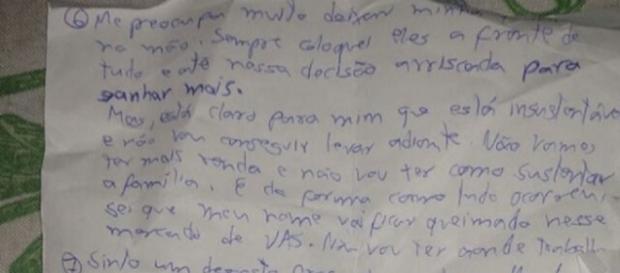 ⑥ Me preocupa muito deixar minha
na mão. Sempre coloquei eles a fronte de
tudo e até nossa decisão arriscada para
ganhar mais.
Mas, está claro para mim qe está insustentáve
e não vou conseguir levar adiante. Não vamos
ter mais renda e não vou ter como sustentar
a família. E da forma como tudo ocorreu,
sei que meu nome vai ficar queimado nesse
mercado de VAS. Não vou ter aonde trabalh
⑦ Sinto um